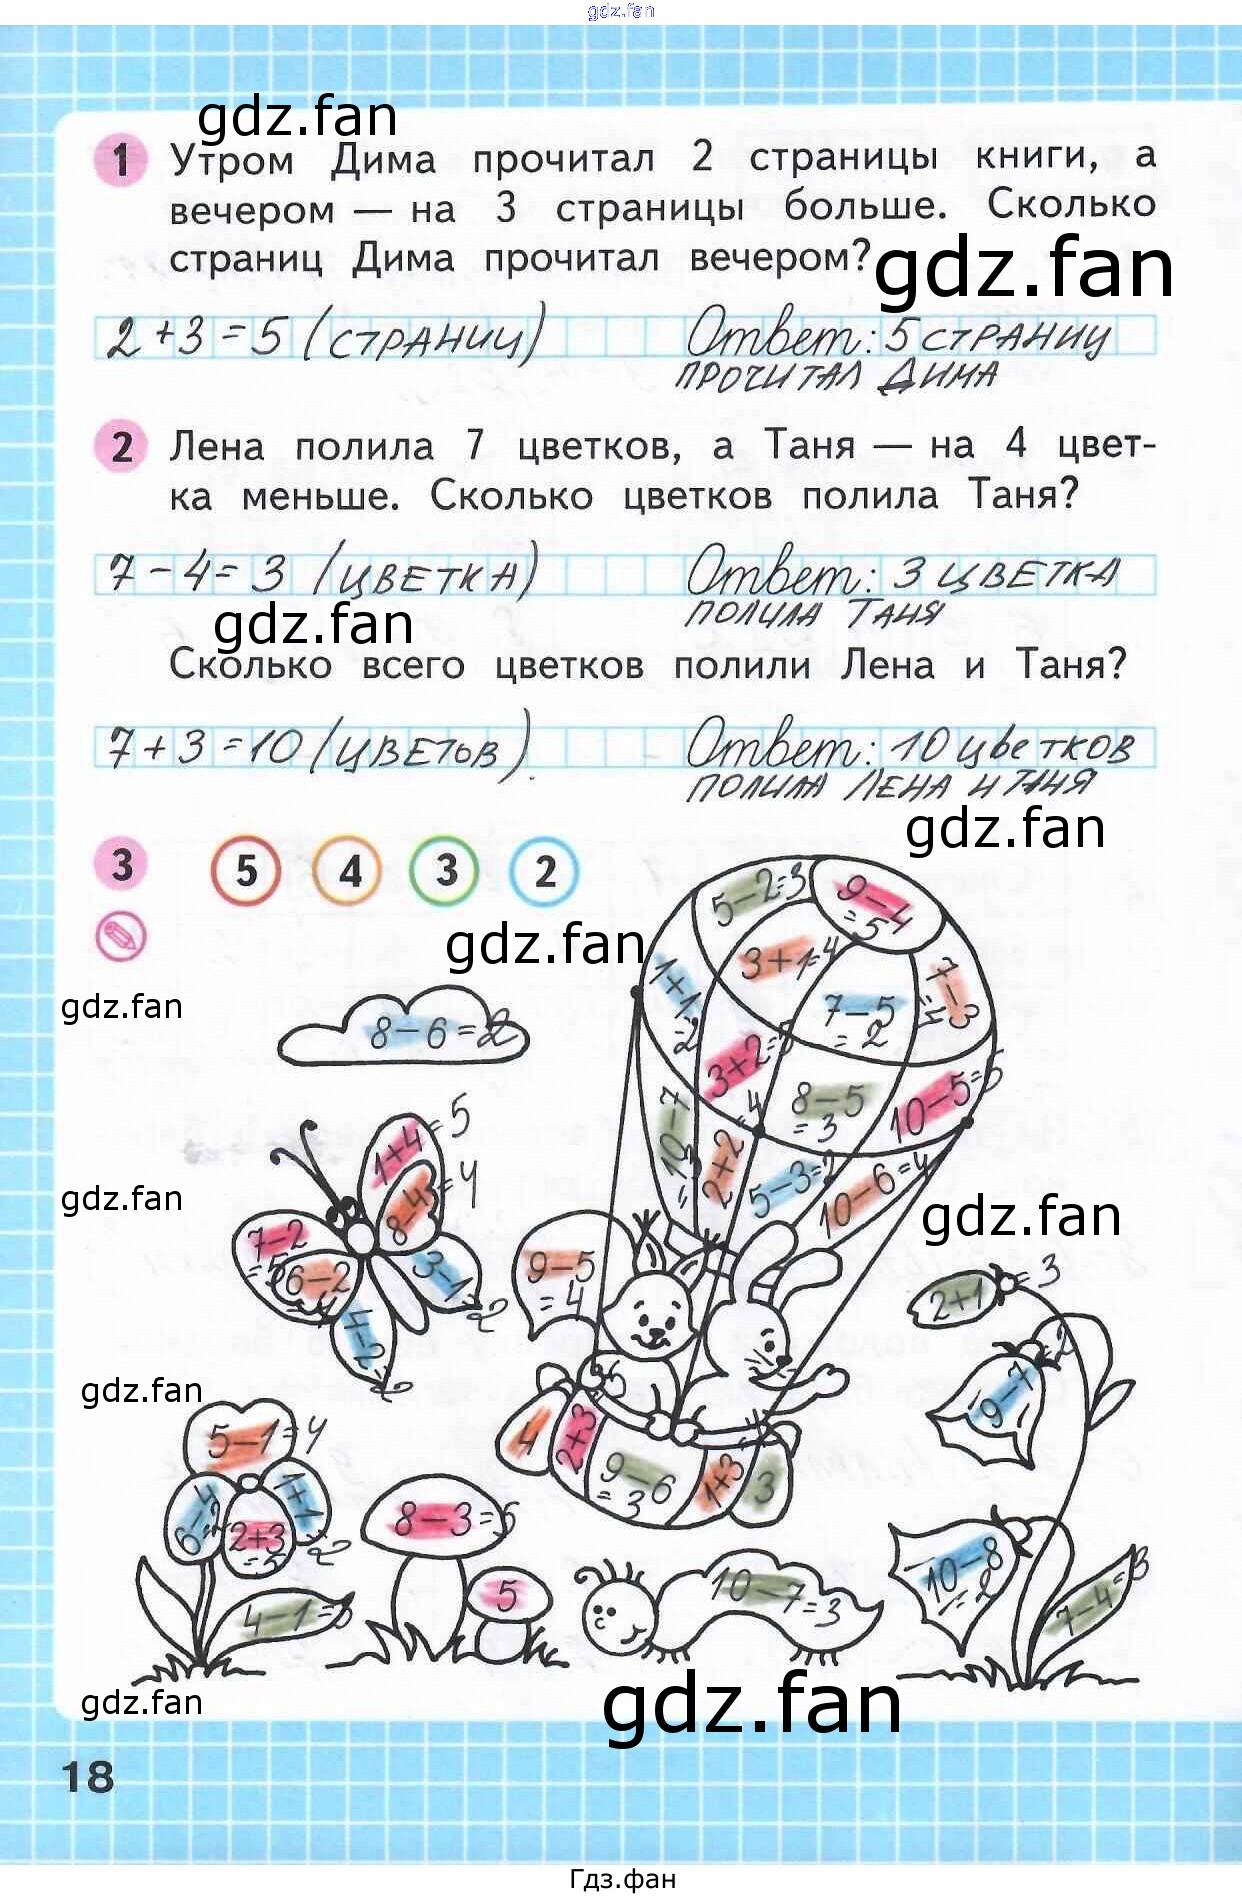 gdz.fan
gdz.fan
1 Утром Дима прочитал 2 страницы книги, а
вечером — на 3 страницы больше. Сколько
страниц Дима прочитал вечером?
gdz.fan
2+3=5 (СТРАНИЦ) Ответ: 5 СТРАНИЦ
ПРОЧИТАЛ ДИМА
2 Лена полила 7 цветков, а Таня — на 4 цвет-
ка меньше. Сколько цветков полила Таня?
7-4=3 (ЦВЕТКА) Ответ: 3 ЦВЕТКА
ПОЛИЛА ТАНЯ
gdz.fan
Сколько всего цветков полили Лена и Таня?
7+3=10 (ЦВЕТЬВ). Ответ: 10 цветков
ПОЛИЛИ ЛЕНА И ТАНЯ
gdz.fan
3 5 4 3 2
gdz.fan
gdz.fan
5-2=3
9-4
=5
3+1=4
1+1
=2
7-5
=2
7-3
=4
8-6=2
3+2=5
8-5
=3
10-5=5
10-7
=3
2+2
=4
5-3=2
10-6=4
1+4=5
8-4=4
gdz.fan
gdz.fan
7-2
=5
6-2
3-1=2
4-2
2
9-5
=4
2+1=3
9-7=2
gdz.fan
5-1=4
6-4
=2
1+1
=2
2+3
=5
4-1=3
8-3=5
5
4
2+3
9-6
=3
1+3
3
10-7=3
10-8
=2
7-4=3
gdz.fan
gdz.fan
18
Гдз.фан